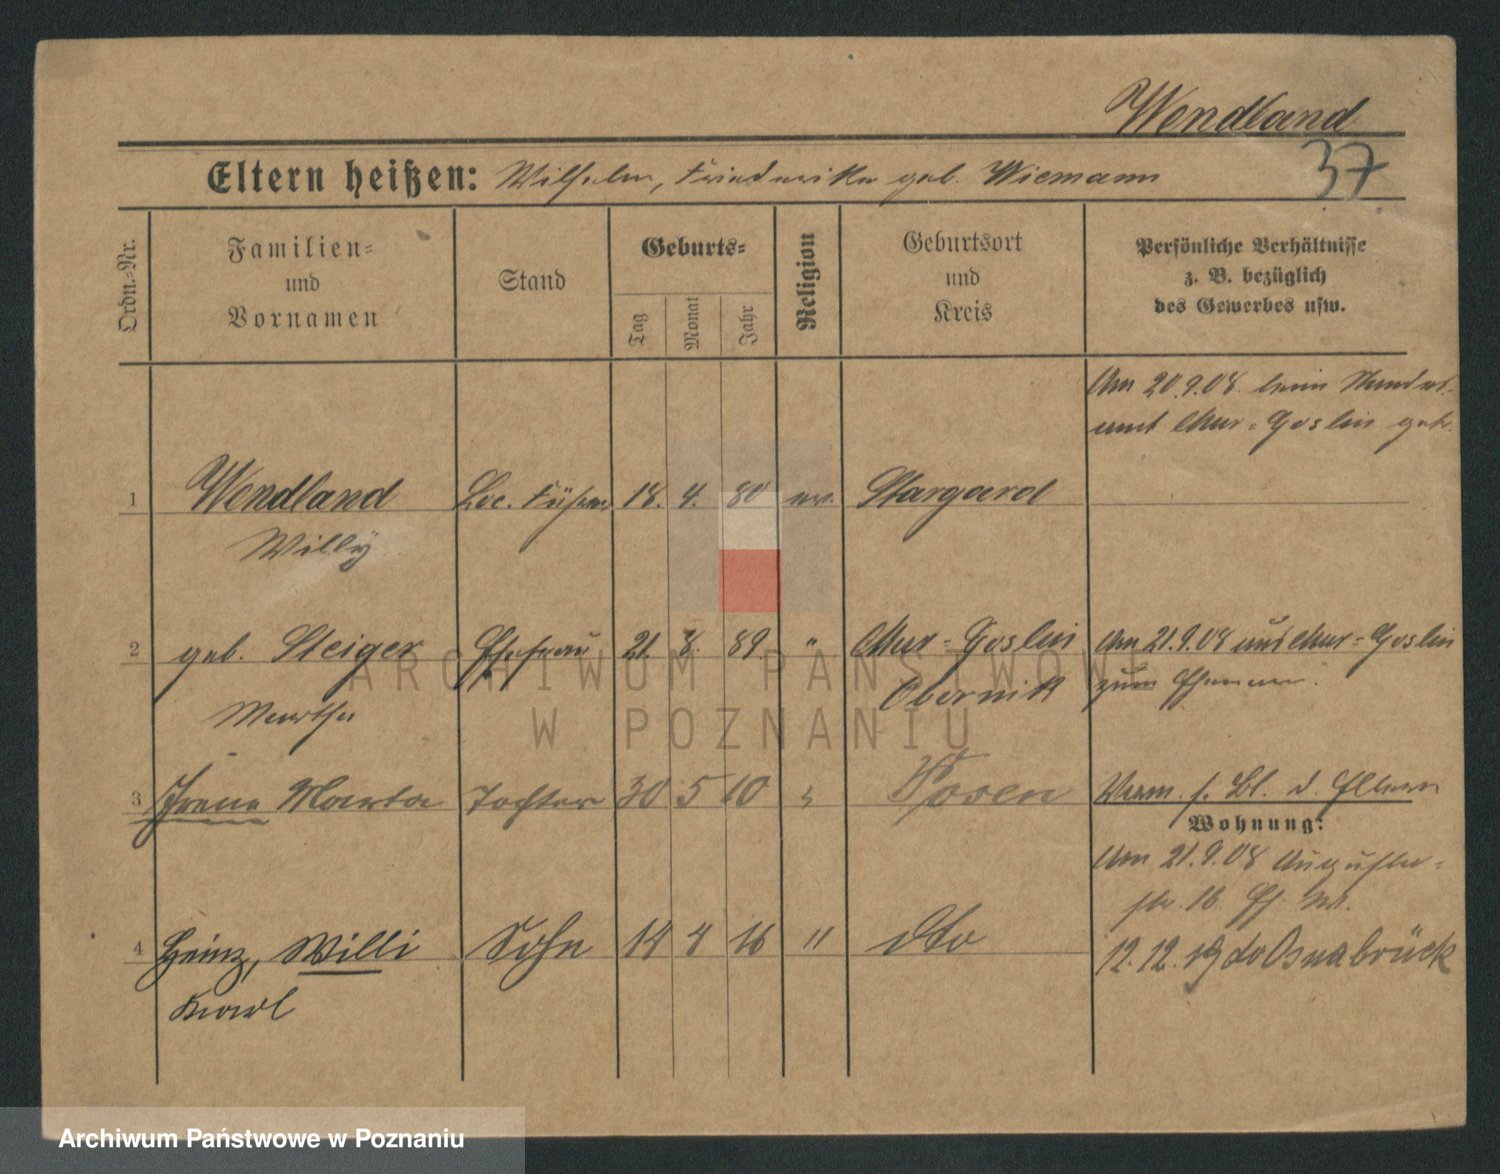 Wendland
37
Eltern heißen: Wilhelm, Friederike geb. Wiemann
Ordn.-Nr.
Familien-
und
Vornamen
Stand
Geburts-
Tag
Monat
Jahr
Religion
Geburtsort
und
Kreis
Persönliche Verhältnisse
z. B. bezüglich
des Gewerbes usw.
Am 20.9.08. beim Standes-
amt Mur-Goslin getr.
1 Wendland Loc. Führer 18. 4. 80 ev. Stargard
Willÿ
2 geb. Steiger Ehefrau 21. 8. 89 " Mur-Goslin Am 21.9.08 aus Mur-Goslin
Martha Obernik zum Ehemann.
3 Irene Marta Tochter 30 5 10 Posen Verm. s. Bl. d. Eltern
Wohnung:
Am 21.9.08 Augusta-
str. 16.
4 Heinz, Willi Sohn 14 4 16 " dto 12.12.19 Osnabrück
Karl
ARCHIWUM PAŃSTWOWE
W POZNANIU
Archiwum Państwowe w Poznaniu